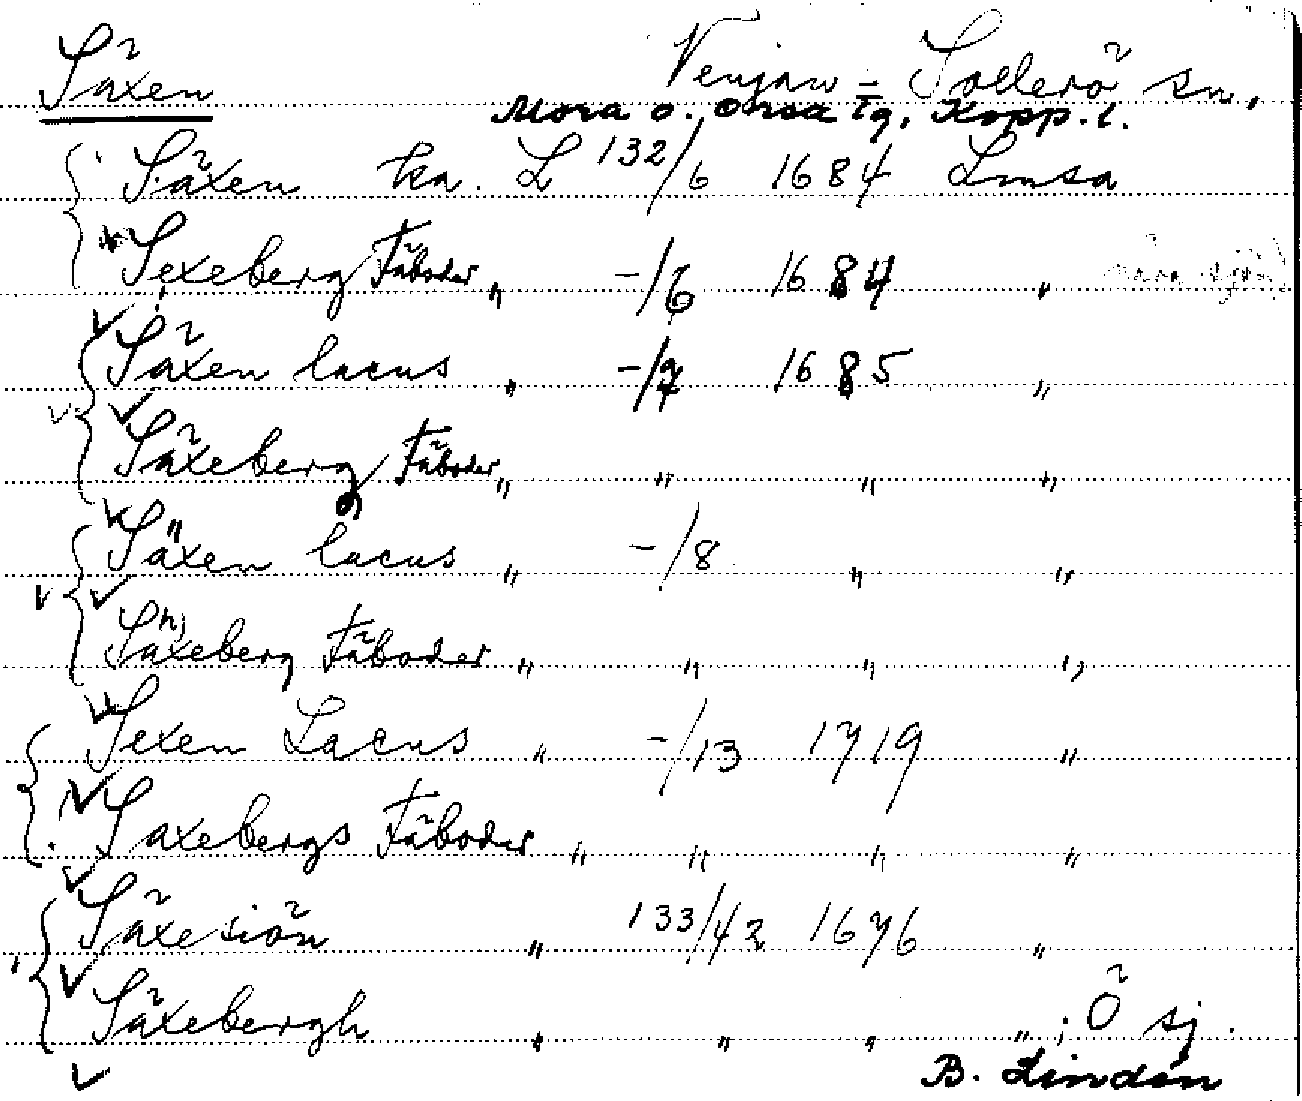 Säxen Venjan = Sollerö sn,
Mora o. Orsa tg, Kopp. l.
Säxen ka. L 132/6 1684 Lmsa
Sexeberg Fäboder " -/6 1684 "
Säxen lacus " -/7 1685 "
Säxeberg Fäboder " " " "
Säxen lacus " -/8 " "
Säxeberg Fäboder " " " "
Sexen Lacus " -/13 1719 "
Saxebergs Fäboder " " " "
Säxesiön " 133/42 1676 "
Säxebergh " " " " ; Ö sj.
B. Lindén